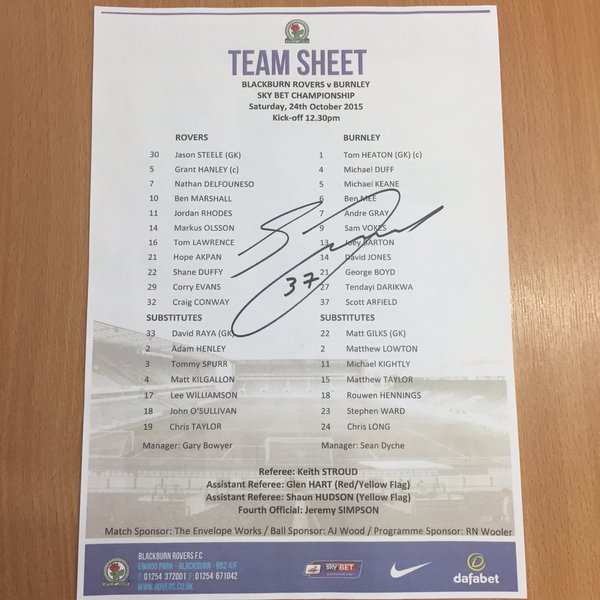 TEAM SHEET
BLACKBURN ROVERS v BURNLEY
SKY BET CHAMPIONSHIP
Saturday, 24th October 2015
Kick-off 12.30pm
ROVERS
30 Jason STEELE (GK)
5 Grant HANLEY (c)
7 Nathan DELFOUNESO
10 Ben MARSHALL
11 Jordan RHODES
14 Markus OLSSON
16 Tom LAWRENCE
21 Hope AKPAN
22 Shane DUFFY
29 Corry EVANS
32 Craig CONWAY
SUBSTITUTES
33 David RAYA (GK)
2 Adam HENLEY
3 Tommy SPURR
4 Matt KILGALLON
17 Lee WILLIAMSON
18 John O'SULLIVAN
19 Chris TAYLOR
Manager: Gary Bowyer
BURNLEY
1 Tom HEATON (GK) (c)
4 Michael DUFF
5 Michael KEANE
6 Ben MEE
7 Andre GRAY
9 Sam VOKES
13 Joey BARTON
14 David JONES
21 George BOYD
27 Tendayi DARIKWA
37 Scott ARFIELD
SUBSTITUTES
22 Matt GILKS (GK)
2 Matthew LOWTON
11 Michael KIGHTLY
15 Matthew TAYLOR
18 Rouwen HENNINGS
23 Stephen WARD
24 Chris LONG
Manager: Sean Dyche
37
Referee: Keith STROUD
Assistant Referee: Glen HART (Red/Yellow Flag)
Assistant Referee: Shaun HUDSON (Yellow Flag)
Fourth Official: Jeremy SIMPSON
Match Sponsor: The Envelope Works / Ball Sponsor: AJ Wood / Programme Sponsor: RN Wooler
BLACKBURN ROVERS F.C
EWOOD PARK - BLACKBURN - BB2 4JF
T: 01254 372001 F: 01254 671042
WWW.ROVERS.CO.UK
sky BET
dafabet